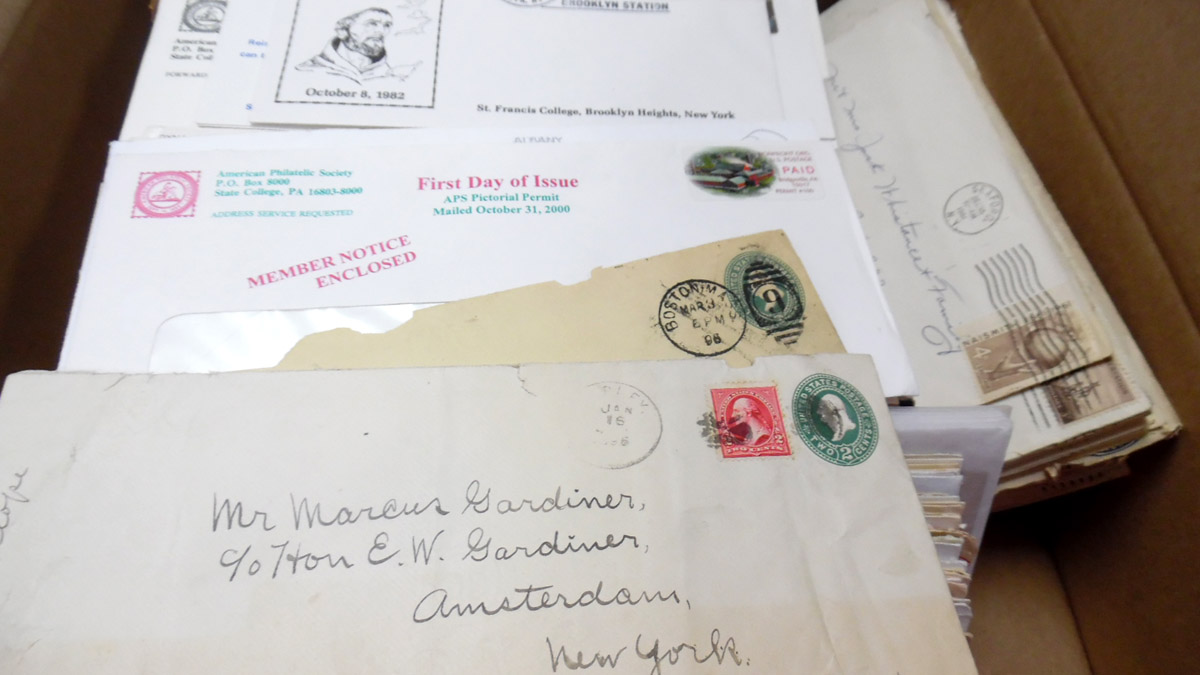 BROOKLYN STATION
American
P.O. Box
State Col
FORWARD
October 8, 1982
St. Francis College, Brooklyn Heights, New York
ALBANY
American Philatelic Society
P.O. Box 8000
State College, PA 16803-8000
ADDRESS SERVICE REQUESTED
First Day of Issue
APS Pictorial Permit
Mailed October 31, 2000
U.S. POSTAGE
PAID
MEMBER NOTICE
ENCLOSED
BOSTON, MA
MAR
6 PM
98
9
Mr Mrs Jack
Family
N.Y.
NAISMITH
4
JAN
16
UNITED STATES POSTAGE
TWO 2 CENTS
TWO CENTS
Mr Marcus Gardiner,
c/o Hon E. W. Gardiner,
Amsterdam,
New York.